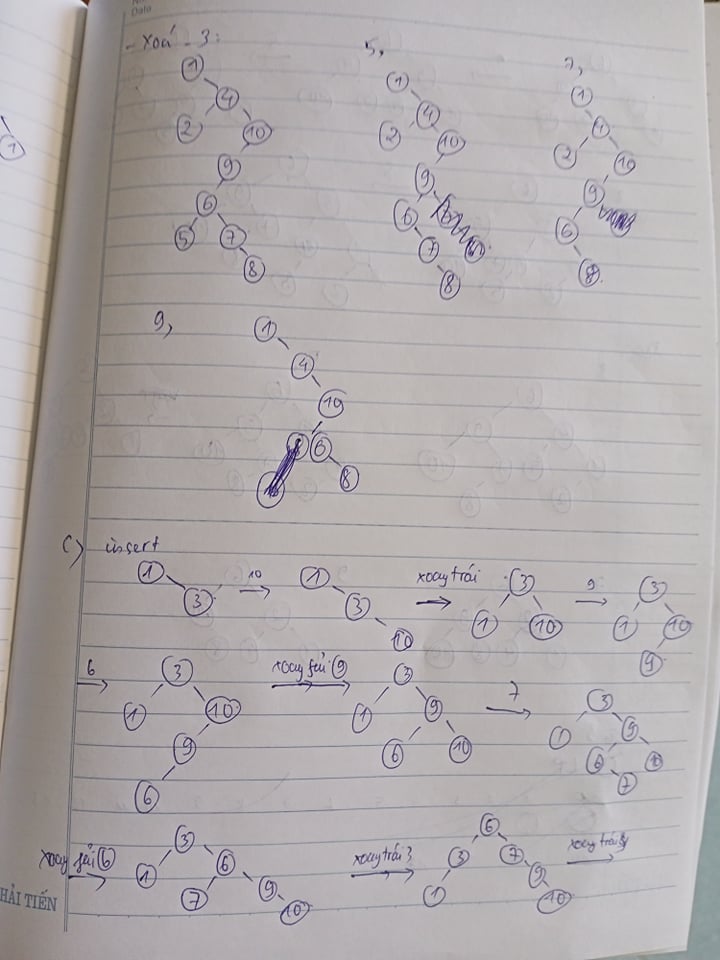 Date
- Xoá - 3:
5,
7,
1
1
1
4
4
4
2
10
2
10
2
10
9
9
9
6
6
6
5
7
7
8
8
8
9,
1
4
10
6
8
1
c) insert
1
3
10
1
3
10
xoay trái
3
1
10
9
3
1
10
9
6
3
1
10
9
6
xoay phải (9)
3
1
9
6
10
7
3
1
9
6
10
7
xoay phải (6)
3
1
6
7
9
10
xoay trái 3
6
3
7
1
9
10
xoay trái
HẢI TIẾN